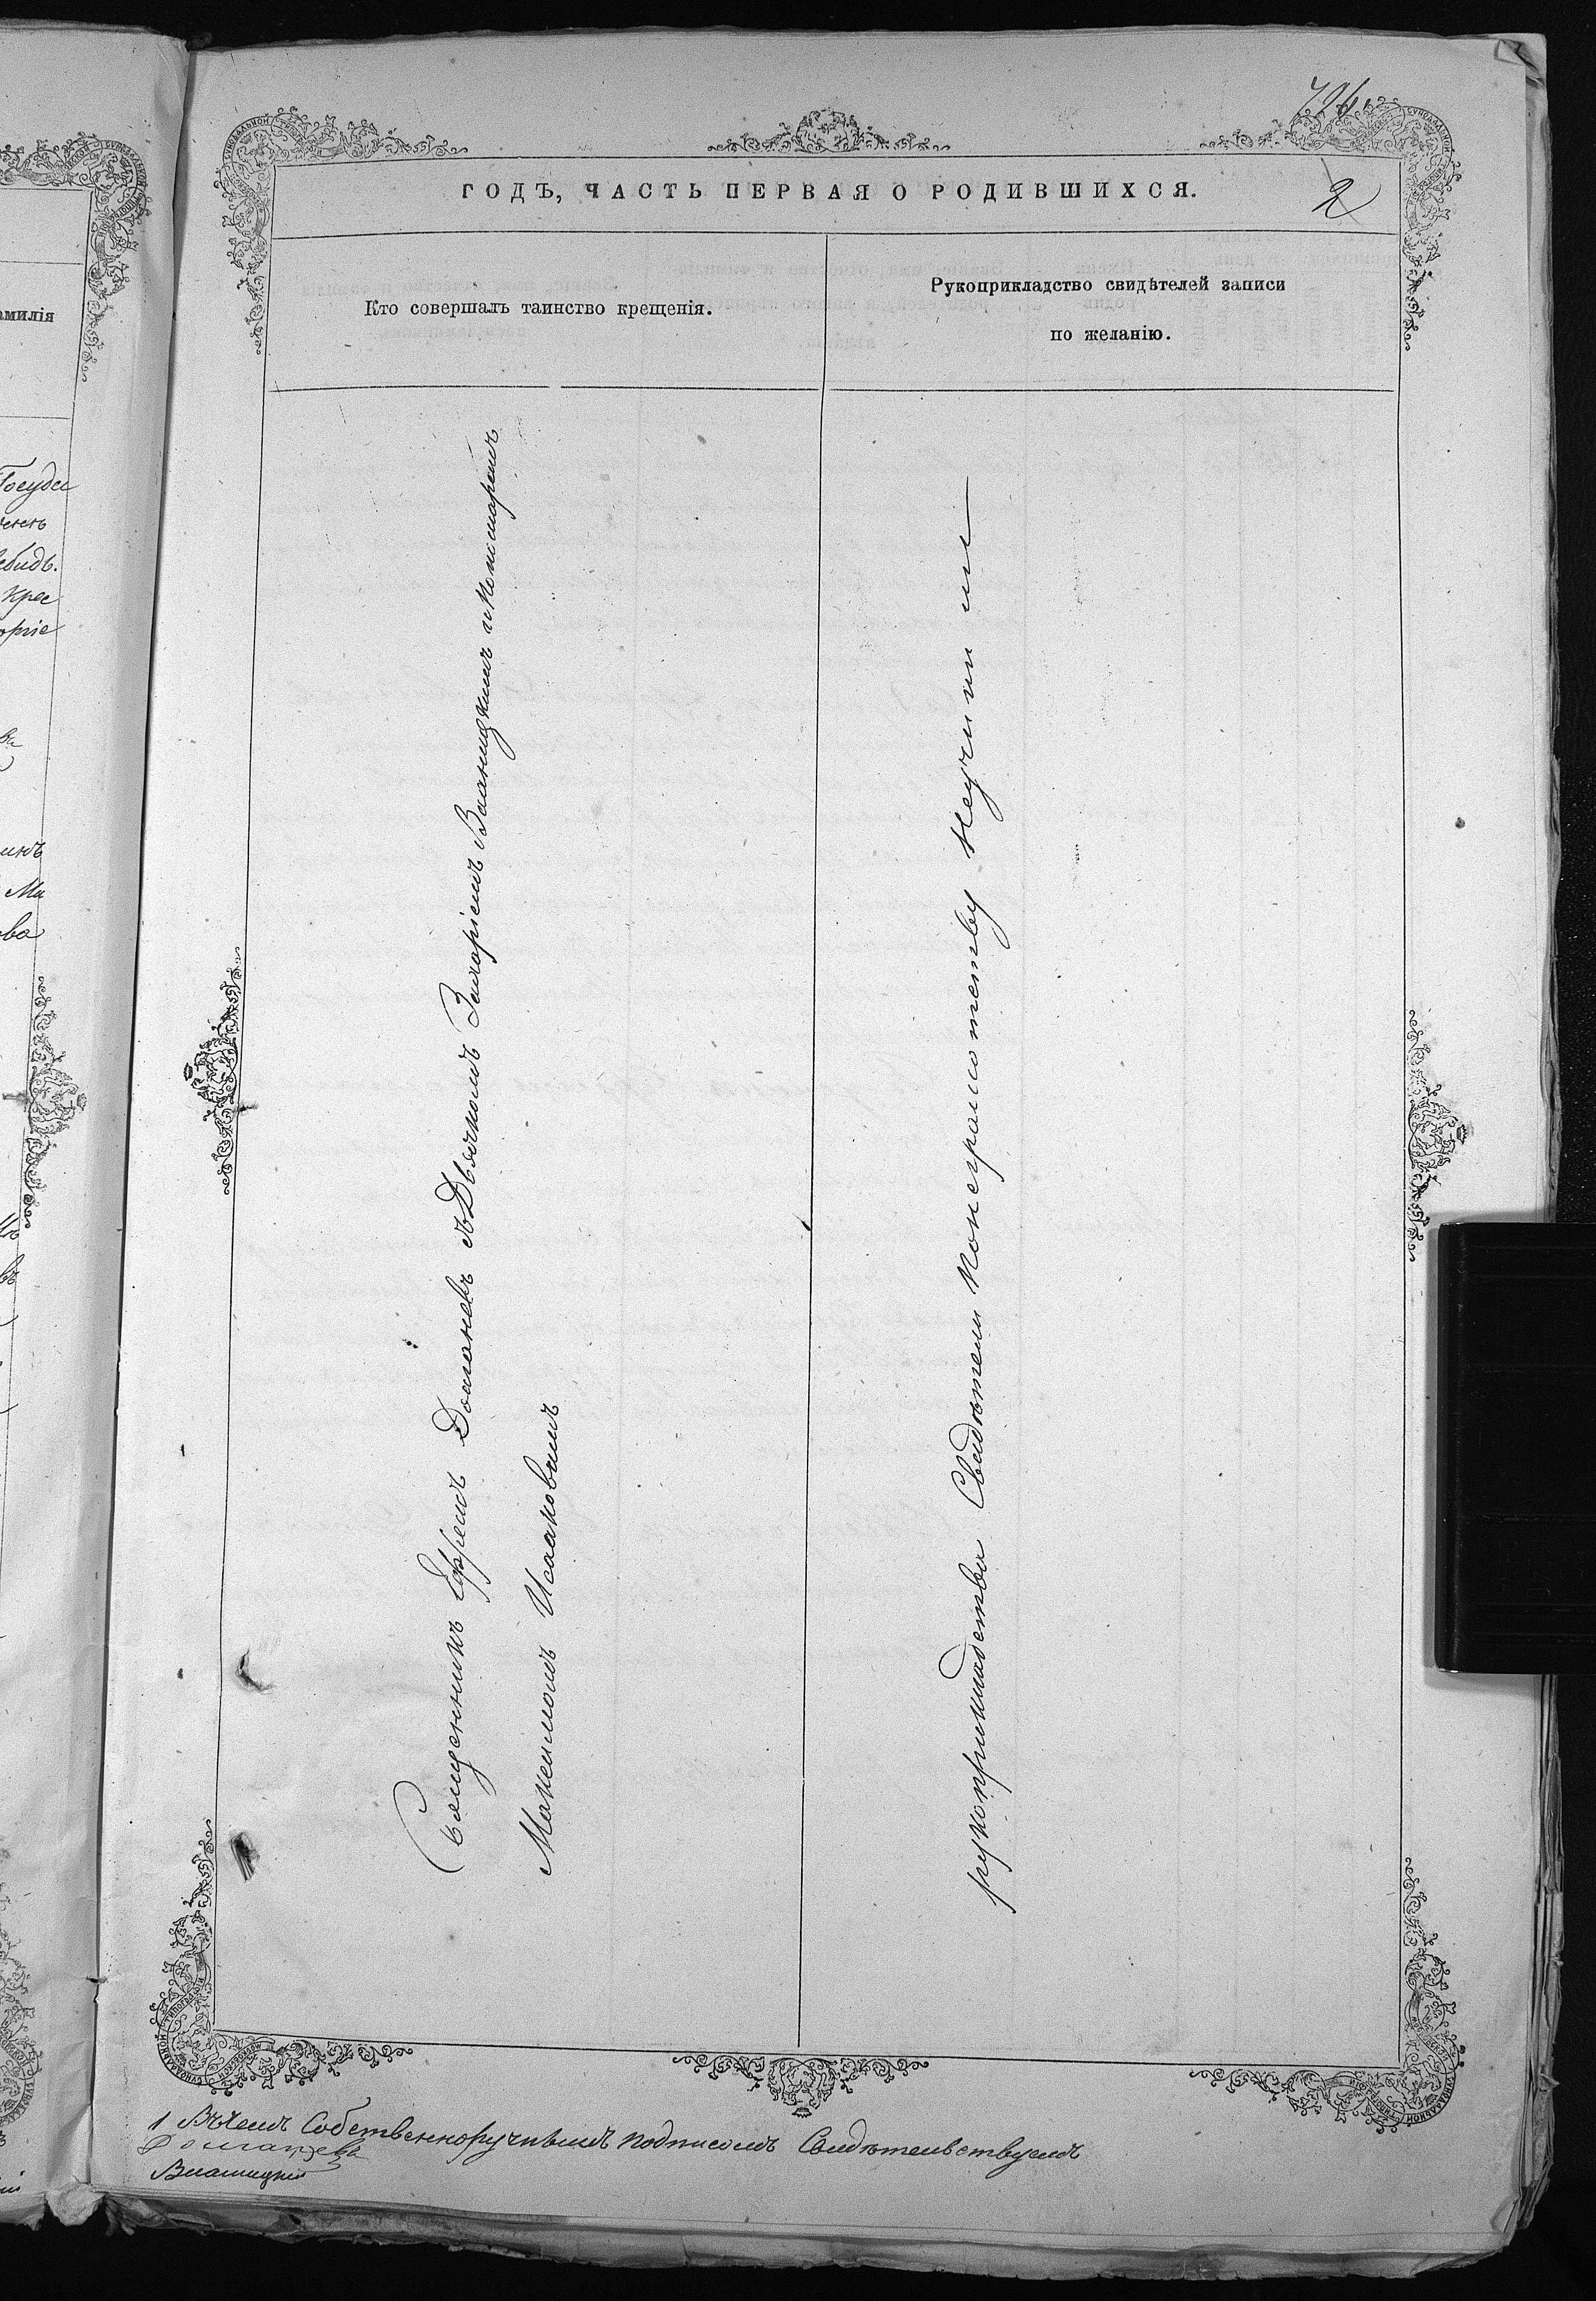 2
ГОДЪ, ЧАСТЬ ПЕРВАЯ О РОДИВШИХСЯ.
Кто совершалъ таинство крещенія.
Рукоприкладство свидѣтелей записи
по желанію.
Священникъ Ефремъ Доманевъ съ Дьячкомъ Захаріемъ и Пономаремъ
Максимомъ Исааковымъ
рукоприкладства Свидѣтели по неграмотству не учинили
амилія
Въ чемъ Собственноручнымъ подписомъ Свидѣтельствуемъ